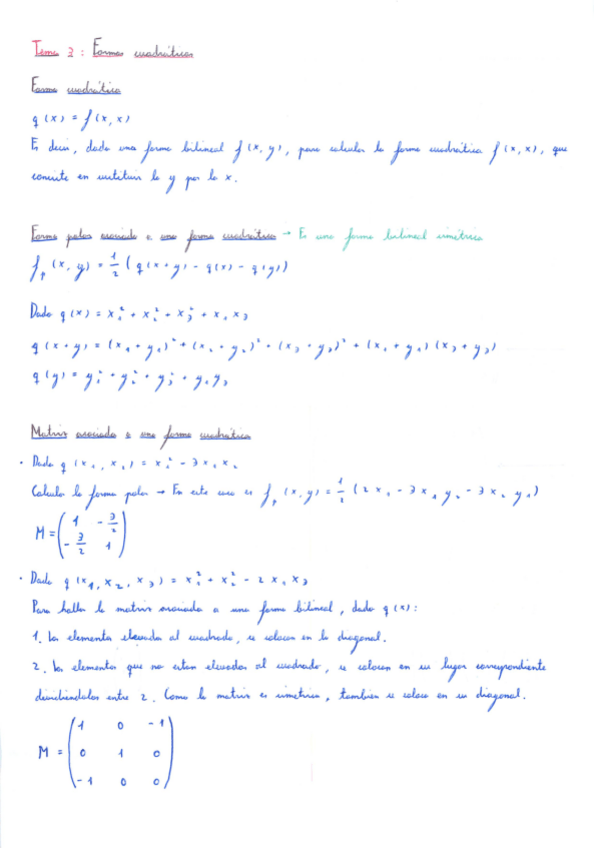 Tema 3 : Formas cuadráticas
Forma cuadrática
q(x) = f(x, x)
Es decir, dada una forma bilineal f(x, y), para calcular la forma cuadrática f(x, x), que
consiste en sustituir la y por la x.
Forma polar asociada a una forma cuadrática → Es una forma bilineal simétrica
fₚ(x, y) = 1/2 (q(x+y) - q(x) - q(y))
Dado q(x) = x₁² + x₂² + x₃² + x₁x₃
q(x+y) = (x₁+y₁)² + (x₂+y₂)² + (x₃+y₃)² + (x₁+y₁)(x₃+y₃)
q(y) = y₁² + y₂² + y₃² + y₁y₃
Matriz asociada a una forma cuadrática
· Dada q(x₁, x₂) = x₁² - 3x₁x₂
Calcular la forma polar → En este caso es fₚ(x, y) = 1/2 (2x₁ - 3x₁y₂ - 3x₂y₁)
M = ( 1 -3/2
-3/2 1 )
· Dada q(x₁, x₂, x₃) = x₁² + x₂² - 2x₁x₃
Para hallar la matriz asociada a una forma bilineal, dado q(x):
1. Los elementos elevados al cuadrado, se colocan en la diagonal.
2. Los elementos que no estan elevados al cuadrado, se colocan en su lugar correspondiente
dividiéndolos entre 2. Como la matriz es simétrica, tambien se coloca en su diagonal.
M = ( 1 0 -1
0 1 0
-1 0 0 )